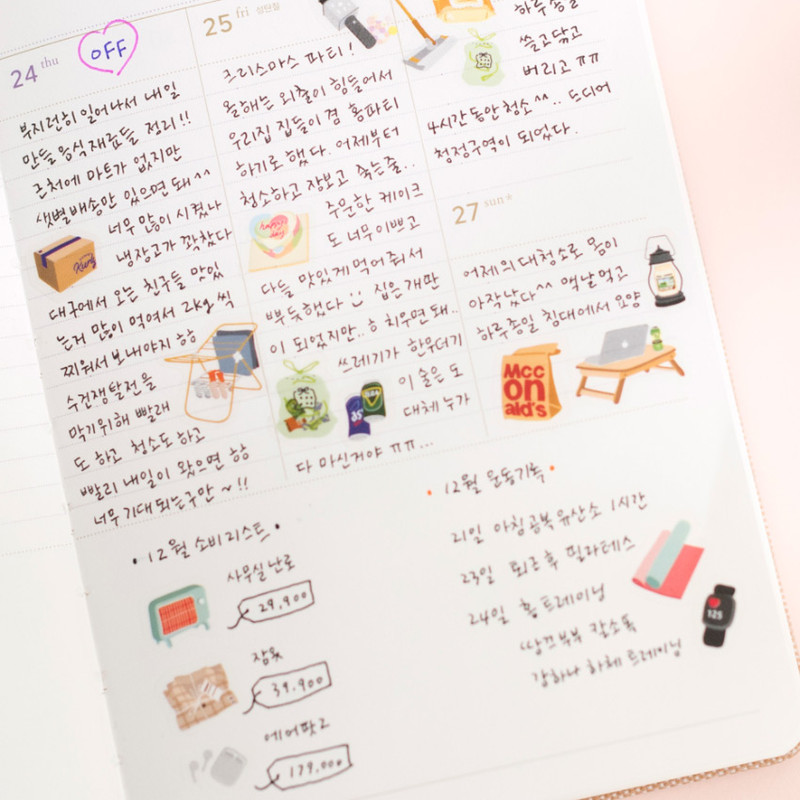 24 thu
OFF
부지런히 일어나서 내일
만들 음식재료들 정리!!
근처에 마트가 없지만
샛별배송만 있으면 돼^^
너무 많이 시켰나
냉장고가 꽉찼다
Kurly
대구에서 오는 친구들 맛있
는거 많이 먹여서 2kg씩
찌워서 보내야지 ㅎㅎ
수건쟁탈전을
막기위해 빨래
도 하고 청소도하고
빨리 내일이 왔으면 ㅎㅎ
너무 기대되는구만~!!
25 fri 성탄절
크리스마스 파티!
올해는 외출이 힘들어서
우리집 집들이 겸 홈파티
하기로 했다. 어제부터
청소하고 장보고 죽는줄..
happy day
주문한 케이크
도 너무 이쁘고
다들 맛있게 먹어줘서
뿌듯했다 집은 개판
이 되었지만..ㅎ 치우면 돼..
쓰레기가 한무더기
이 술은 도
대체 누가
다 마신거야 ㅠㅠ...
하루종일
쓸고닦고
버리고 ㅠㅠ
4시간동안 청소^^.. 드디어
청정구역이 되었다.
27 sun
어제의 대청소로 몸이
아작났다^^ 맥날먹고
하루종일 침대에서 요양
Mcc
on
ald's
• 12월 소비리스트 •
사무실 난로
29,900
잠옷
39.900
에어팟2
179,000
• 12월 운동기록 •
21일 아침공복유산소 1시간
23일 퇴근 후 필라테스
24일 홈트레이닝
땅끄부부 칼소폭
강하나 하체 트레이닝
125